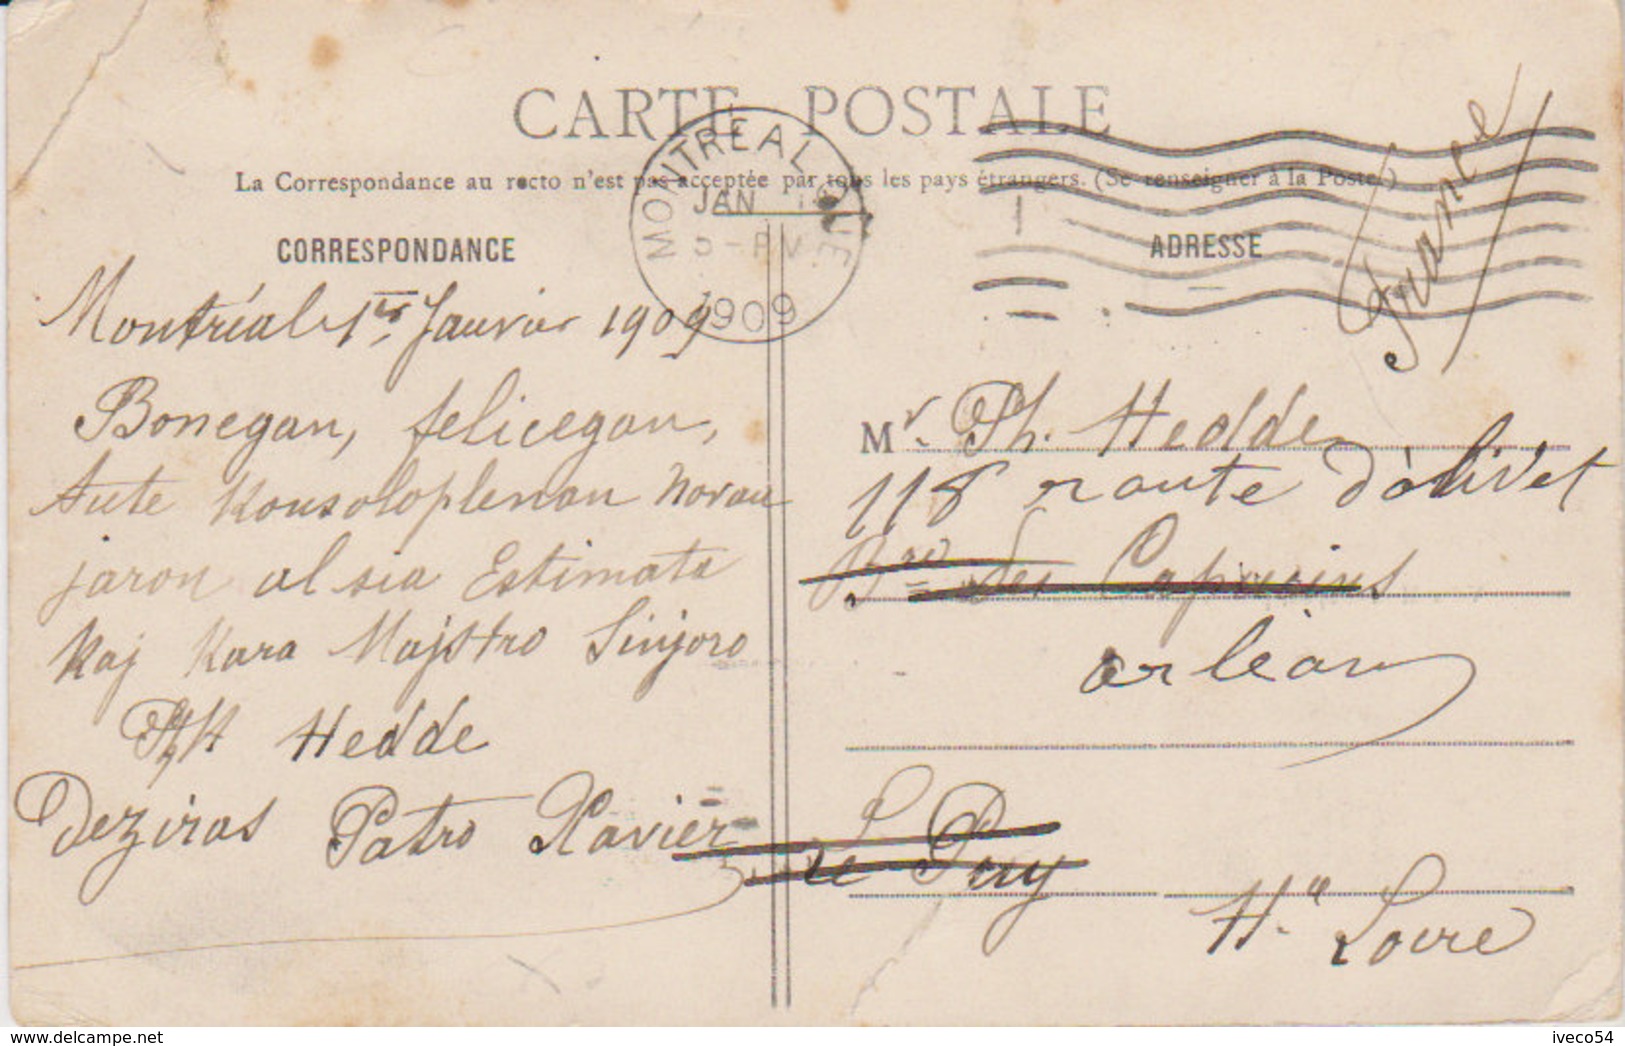 CARTE POSTALE
La Correspondance au recto n'est pas acceptée par tous les pays étrangers. (Se renseigner à la Poste.)
MONTREAL, QUE
JAN
5 - PM
1909
CORRESPONDANCE
ADRESSE
France
Montréal 1er Janvier 1909
Bonegan, felicegan,
Aute Konsoloplenan novan
jaron al sia Estimata
Kaj Kara Majstro Sinjoro
Hedde
Deziras Patro Xavier
Mr. Ph. Hedde
118 route d'olivet
Bard des Capucins
orléans
Le Puy
Hte Loire
delcampe.net
iveco54